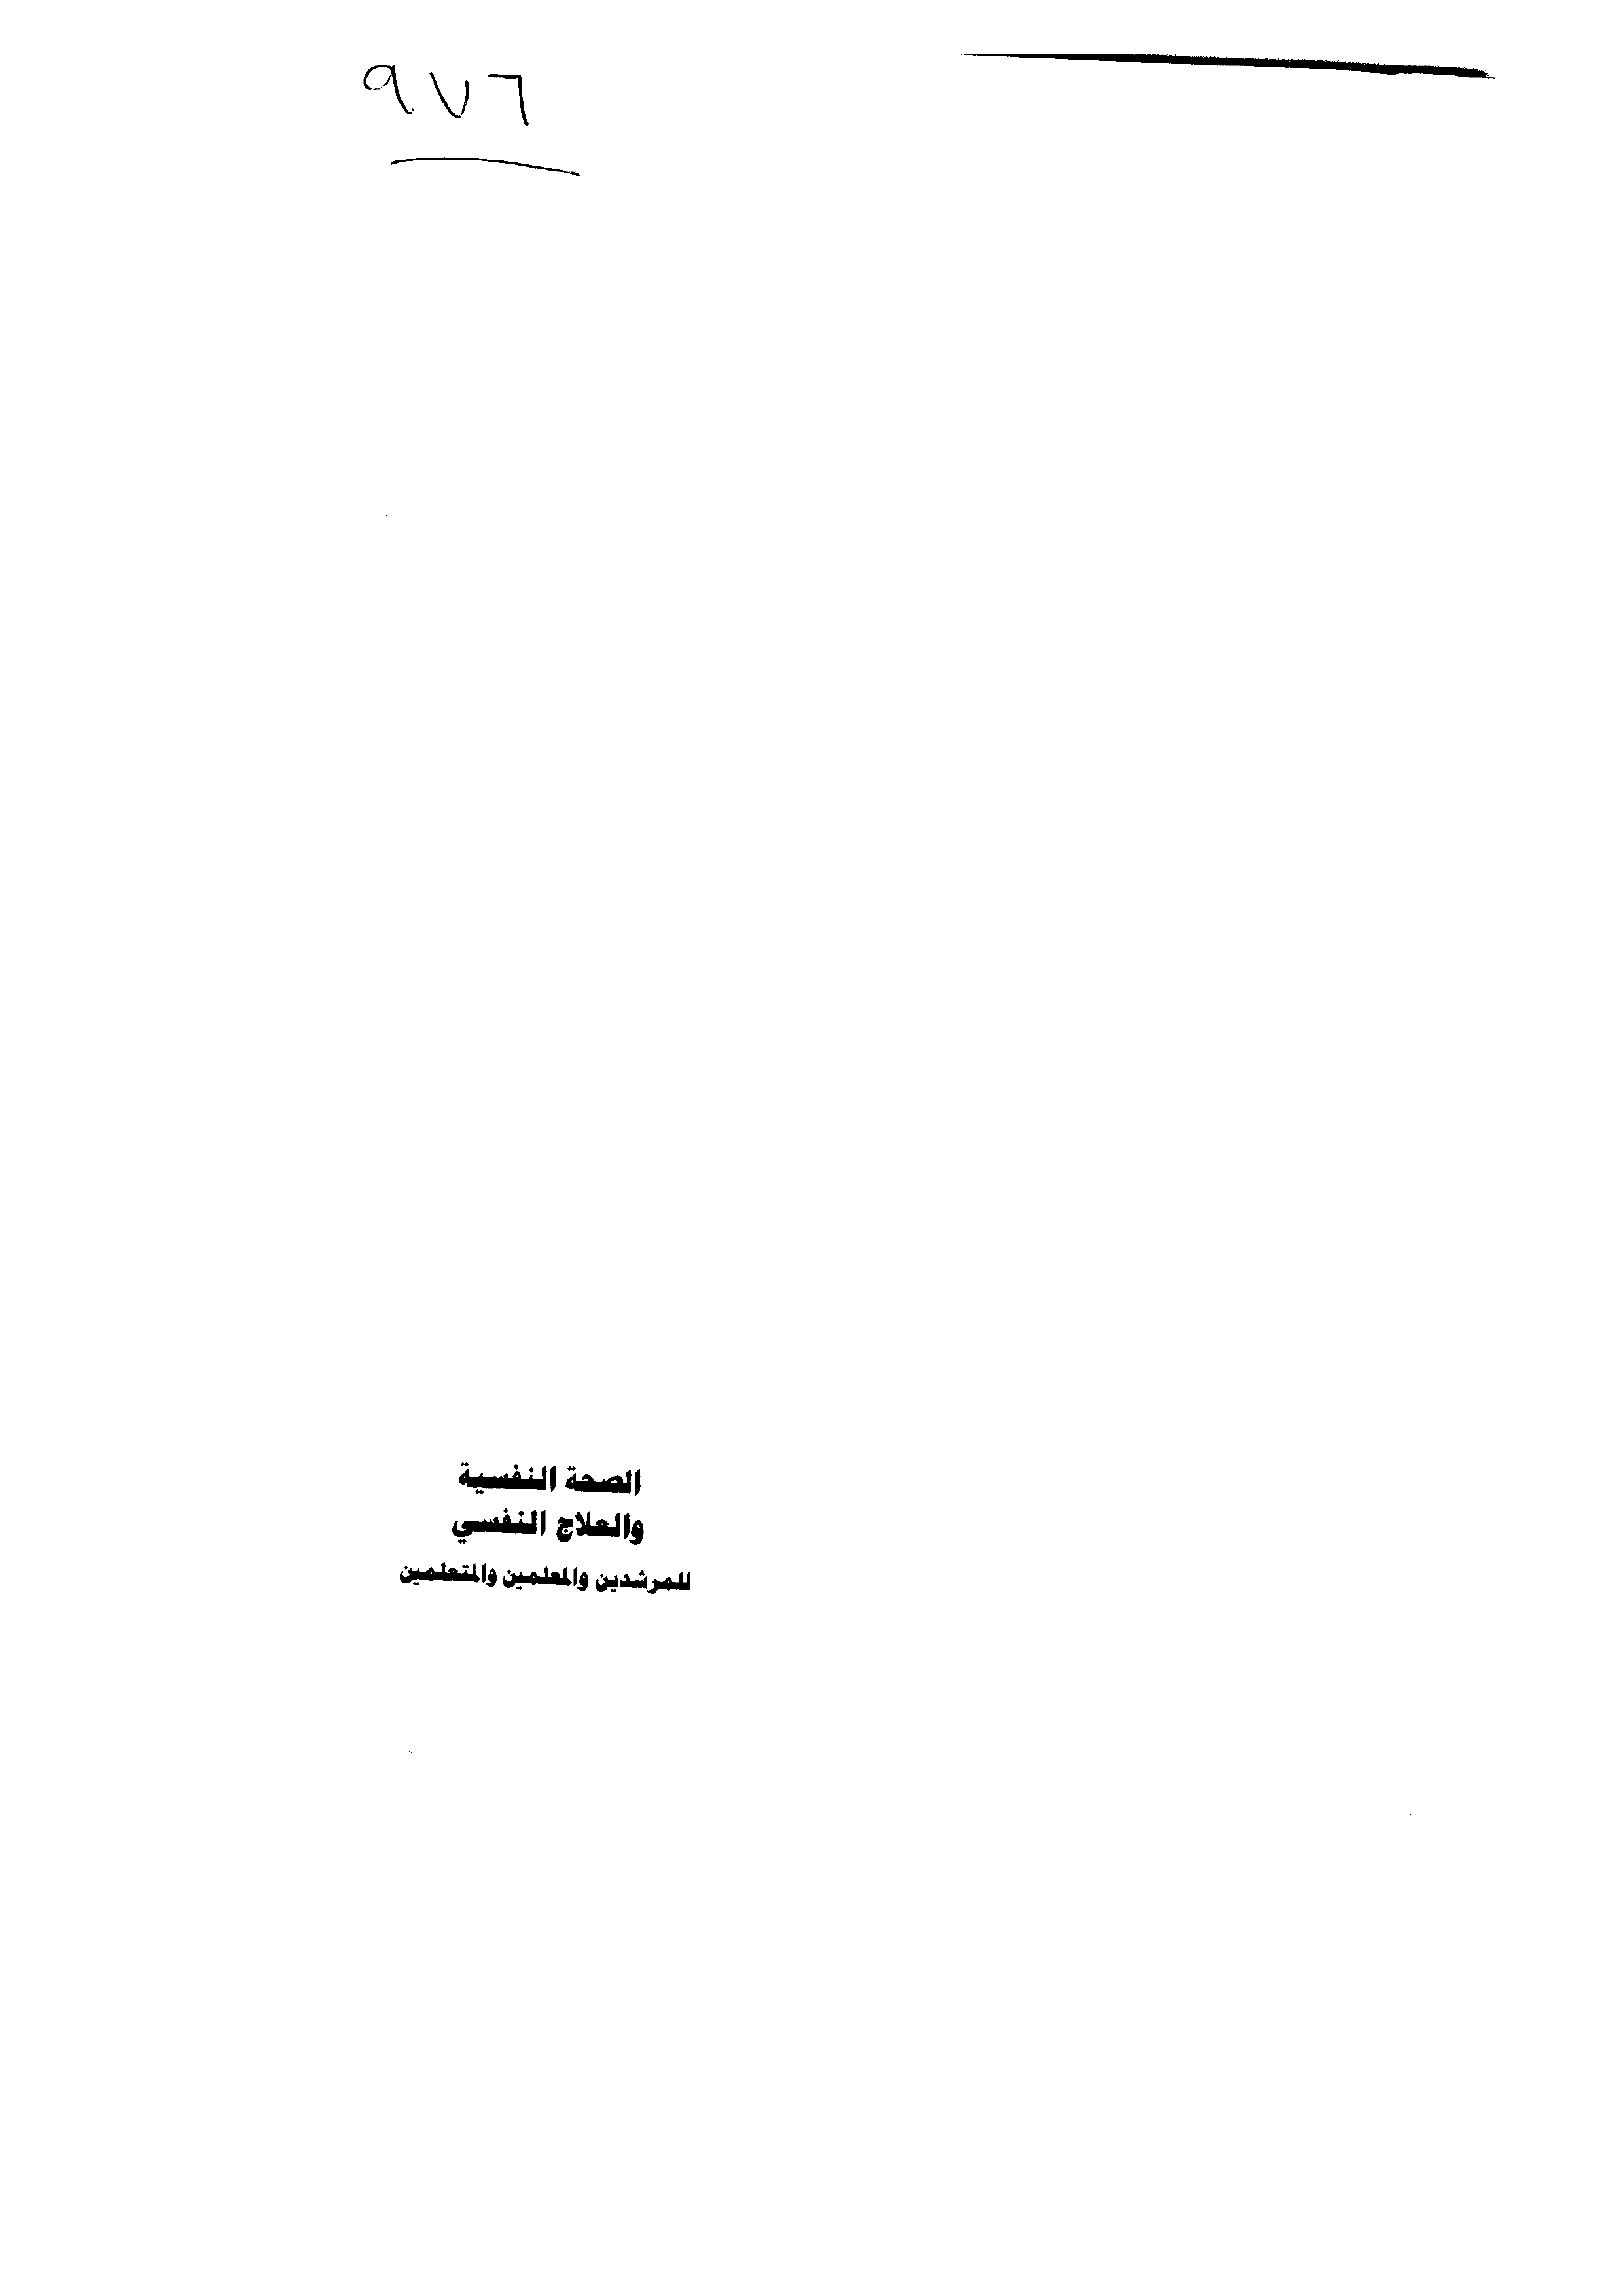 ٩٧٦
الصحة النفسية
والعلاج النفسي
للمرشدين والمعلمين والمتعلمين